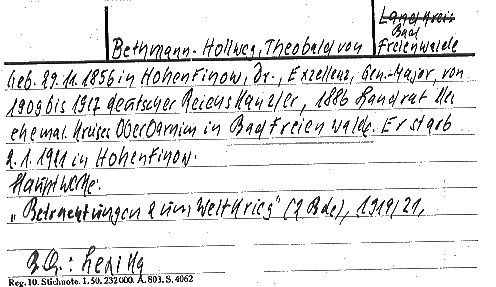 Landkreis
Bad
Freienwalde
Bethmann-Hollweg, Theobald von
Geb. 29.11.1856 in Hohenfinow, Dr., Exzellenz, Gen.-Major, von
1909 bis 1917 deutscher Reichskanzler, 1886 Landrat des
ehemal. Kreises Oberbarnim in Bad Freienwalde. Er starb
2.1.1921 in Hohenfinow.
Hauptwerke:
„Betrachtungen zum Weltkrieg" (2 Bde), 1919/21,
Reg. 10. Stichnote. 1. 50. 232000. A. 803. S. 4062